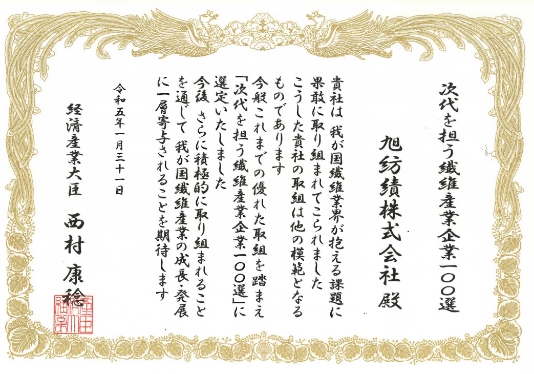 次代を担う繊維産業企業一〇〇選
旭紡績株式会社 殿
貴社は 我が国繊維業界が抱える課題に
果敢に取り組まれてこられました
こうした貴社の取組は他の模範となる
ものであります
今般これまでの優れた取組を踏まえ
「次代を担う繊維産業企業一〇〇選」に
選定いたしました
今後 さらに積極的に取り組まれること
を通じて 我が国繊維産業の成長・発展
に一層寄与されることを期待します
令和五年一月三十一日
経済産業大臣 西村 康稔